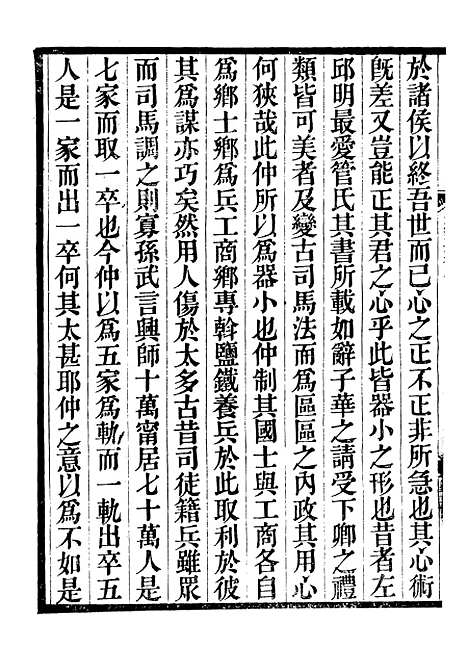 於諸侯以終吾世而已心之正不正非所急也其心術
旣差又豈能正其君之心乎此皆器小之形也昔者左
邱明最愛管氏其書所載如辭子華之請受下卿之禮
類皆可美者及變古司馬法而爲區區之內政其用心
何狹哉此仲所以爲器小也仲制其國士與工商各自
爲鄉士鄉爲兵工商鄉專斡鹽鐵養兵於此取利於彼
其爲謀亦巧矣然用人傷於太多古昔司徒籍兵雖眾
而司馬調之則寡孫武言興師十萬甯居七十萬人是
七家而取一卒也今仲以爲五家爲軌而一軌出卒五
人是一家而出一卒何其太甚耶仲之意以爲不如是